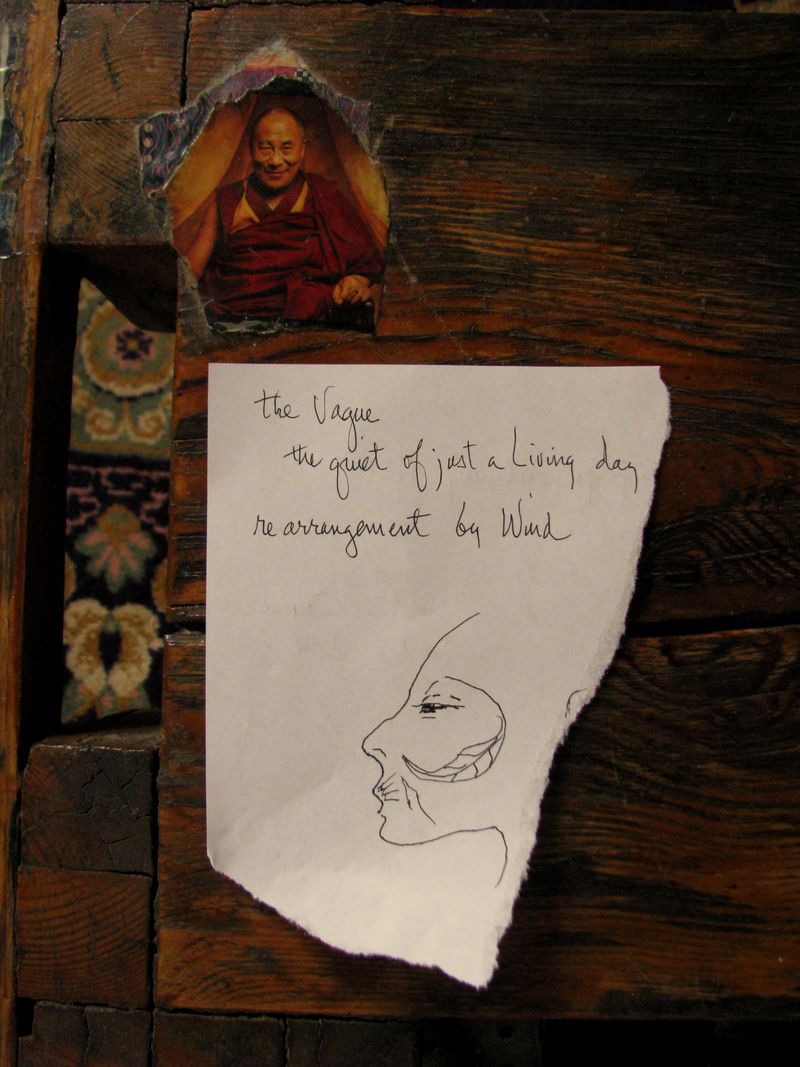 the Vague
the quiet of just a Living day
rearrangement by Wind